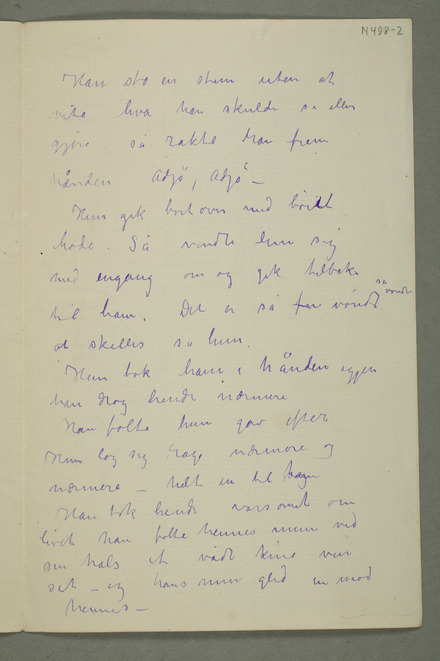 N 498-2
Han sto en stun uten at
vite hva han skulde si eller
gjøre – så rakte han frem
hånden Adjø, Adjø –
Hun gik bortover med böiet
hode. Så vendte hun sig
med engang om og gik tilbake
til ham. Det er så for vondt så vondt
at skilles sa hun.
Hun tok ham i hånden igjen
han drog hende nærmere
Han følte hun gav efter
Hun log sig drage nærmere og
nærmere – helt in til
Han tok hende varsomt om
livet han følte hennes mun ved
sin hals et vådt kin
– og hans mun gled in mod
hennes –